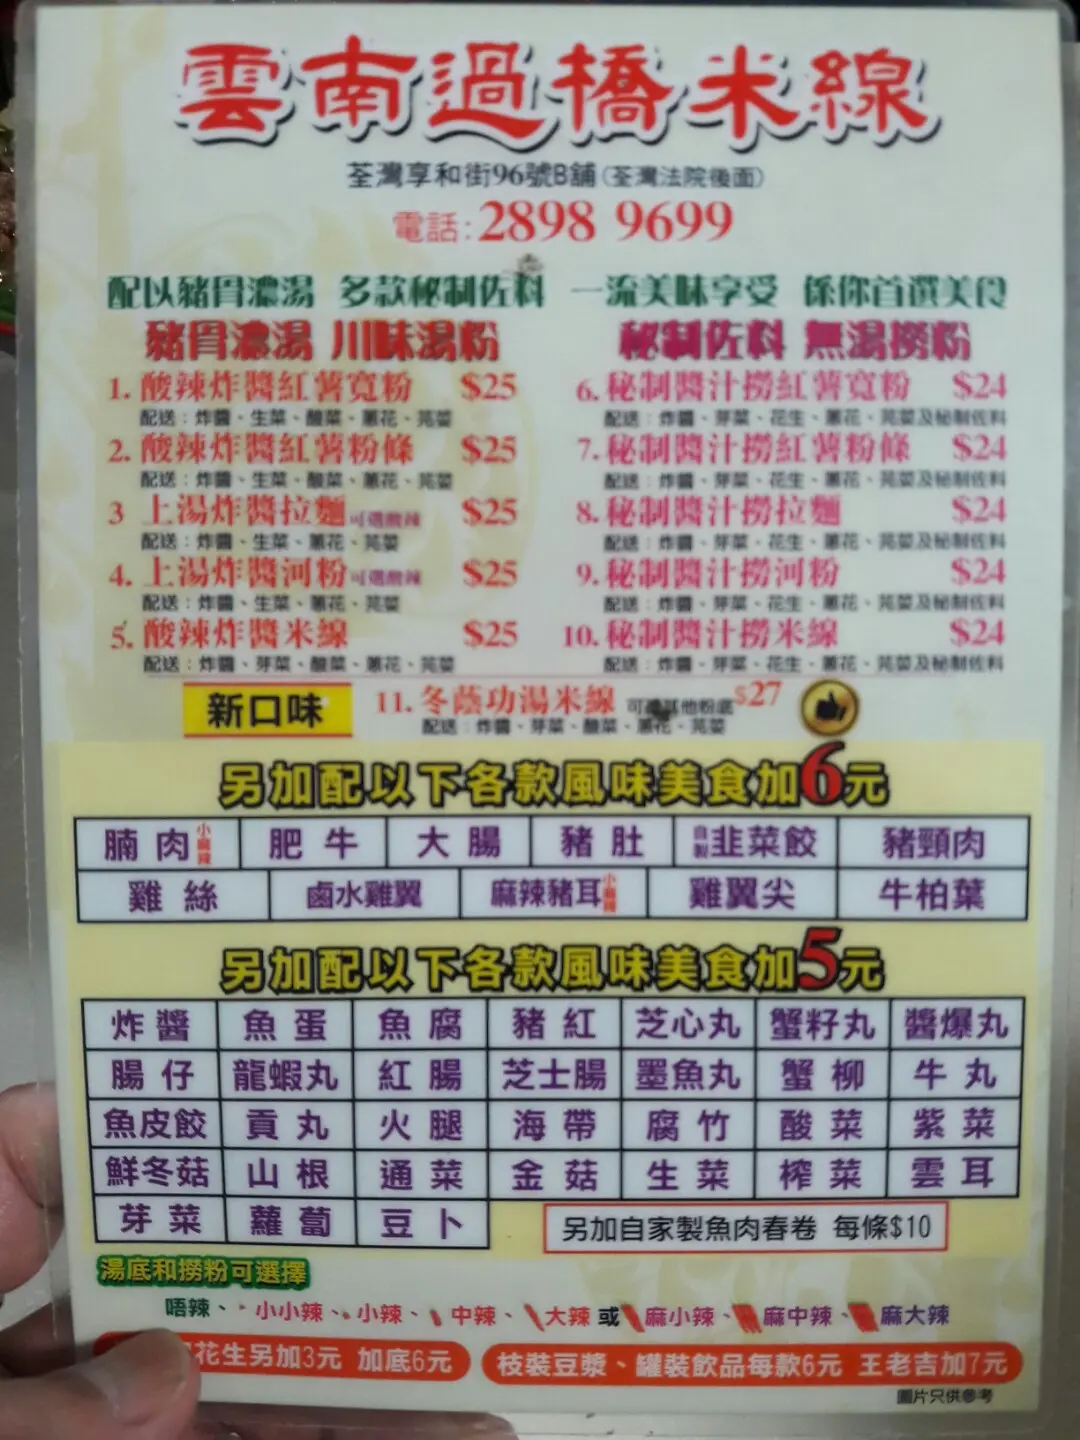 雲南過橋米線
荃灣享和街96號B舖(荃灣法院後面)
電話:2898 9699
配以豬骨濃湯 多款秘制佐料 一流美味享受 係你首選美食
豬骨濃湯 川味湯粉
1. 酸辣炸醬紅薯寬粉 $25
配送:炸醬、生菜、酸菜、蔥花、芫荽
2. 酸辣炸醬紅薯粉條 $25
配送:炸醬、生菜、酸菜、蔥花、芫荽
3 上湯炸醬拉麵 可選酸辣 $25
配送:炸醬、生菜、蔥花、芫荽
4. 上湯炸醬河粉 可選酸辣 $25
配送:炸醬、生菜、蔥花、芫荽
5. 酸辣炸醬米線 $25
配送:炸醬、芽菜、酸菜、蔥花、芫荽
秘制佐料 無湯撈粉
6. 秘制醬汁撈紅薯寬粉 $24
配送:炸醬、芽菜、花生、蔥花、芫荽及秘制佐料
7. 秘制醬汁撈紅薯粉條 $24
配送:炸醬、芽菜、花生、蔥花、芫荽及秘制佐料
8. 秘制醬汁撈拉麵 $24
配送:炸醬、芽菜、花生、蔥花、芫荽及秘制佐料
9. 秘制醬汁撈河粉 $24
配送:炸醬、芽菜、花生、蔥花、芫荽及秘制佐料
10. 秘制醬汁撈米線 $24
配送:炸醬、芽菜、花生、蔥花、芫荽及秘制佐料
新口味 11. 冬蔭功湯米線 可選其他粉底 $27
配送:炸醬、芽菜、酸菜、蔥花、芫荽
另加配以下各款風味美食加6元
腩肉 小麻辣 肥牛 大腸 豬肚 自製韭菜餃 豬頸肉
雞絲 鹵水雞翼 麻辣豬耳 小麻辣 雞翼尖 牛柏葉
另加配以下各款風味美食加5元
炸醬 魚蛋 魚腐 豬紅 芝心丸 蟹籽丸 醬爆丸
腸仔 龍蝦丸 紅腸 芝士腸 墨魚丸 蟹柳 牛丸
魚皮餃 貢丸 火腿 海帶 腐竹 酸菜 紫菜
鮮冬菇 山根 通菜 金菇 生菜 榨菜 雲耳
芽菜 蘿蔔 豆卜
另加自家製魚肉春卷 每條$10
湯底和撈粉可選擇
唔辣、小小辣、小辣、中辣、大辣 或 麻小辣、麻中辣、麻大辣
花生另加3元 加底6元
枝裝豆漿、罐裝飲品每款6元 王老吉加7元
圖片只供參考